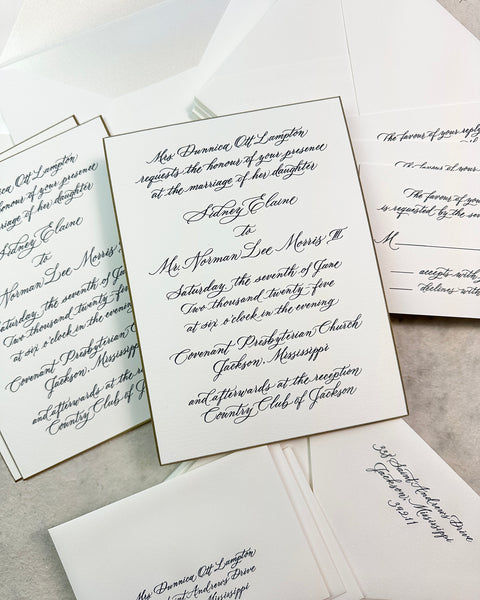 Mrs. Dunnica Ott Lampton
requests the honour of your presence
at the marriage of her daughter
Sidney Elaine
to
Mr. Norman Lee Morris III
Saturday, the seventh of June
Two thousand twenty-five
at six o'clock in the evening
Covenant Presbyterian Church
Jackson, Mississippi
and afterwards at the reception
Country Club of Jackson
Ott Lampton
honour of your presence
marriage of her daughter
Sidney Elaine
to
Norman Lee Morris
Saturday, the seventh of June
Two thousand twenty-five
at six o'clock in the evening
Covenant Presbyterian
Jackson, Mississippi
and afterwards at the
Country Club of
The favour of your reply
favour of
The favour of your
is requested by the
M
accepts
declines
Mrs. Dunnica Ott Lampton
Saint Andrews Drive
Mississippi
338 Saint Andrews Drive
Jackson, Mississippi
39211